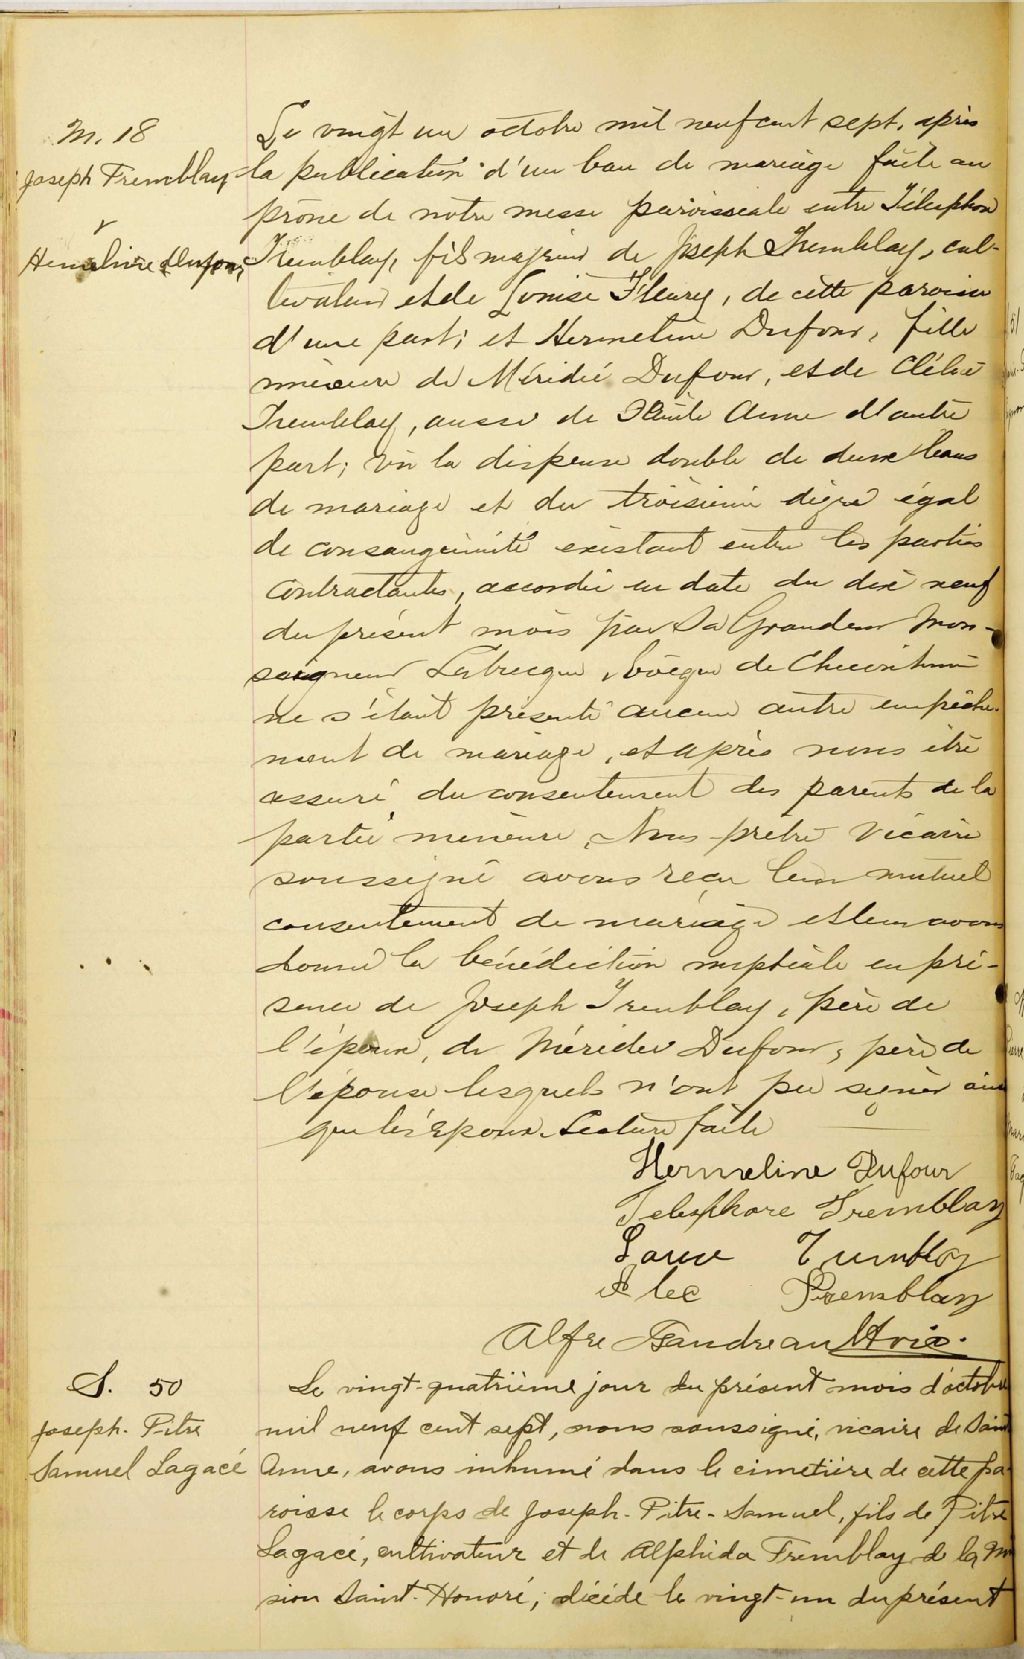 M. 18
Joseph Tremblay
&
Hermeline Dufour
Le vingt un octobre mil neuf cent sept, après
la publication d'un ban de mariage faite au
prône de notre messe paroissiale entre Télesphore
Tremblay, fils majeur de Joseph Tremblay, cul-
tivateur et de Louise Fleury, de cette paroisse
d'une part; et Hermeline Dufour, fille
mineure de Méridé Dufour, et de Clélie
Tremblay, aussi de Sainte Anne d'autre
part; vu la dispense double de deux bans
de mariage et du troisième dégré égal
de consanguinité existant entre les parties
contractantes, accordée en date du dix neuf
du présent mois par Sa Grandeur Mon-
seigneur Labrecque, évêque de Chicoutimi
ne s'étant présenté aucun autre empêche-
ment de mariage, et après nous être
assuré du consentement des parents de la
partie mineure, Nous prêtre vicaire
soussigné avons reçu leur mutuel
consentement de mariage et leur avons
donné la bénédiction nuptiale en pré-
sence de Joseph Tremblay, père de
l'époux, de Méridé Dufour, père de
l'épouse lesquels n'ont pu signer ainsi
que les époux. Lecture faite
Hermeline Dufour
Telesphore Tremblay
Tremblay
Alec Tremblay
Alfre Gaudreau Ptre Vic.
S. 50
Joseph-Pitre
Samuel Lagacé
Le vingt-quatrième jour du présent mois d'octobre
mil neuf cent sept, nous soussigné, vicaire de Saint
Anne, avons inhumé dans le cimetière de cette pa-
roisse le corps de Joseph-Pitre-Samuel, fils de Pitre
Lagacé, cultivateur et de Alphida Tremblay de la Mi
sion Saint-Honoré, décédé le vingt-un du présent